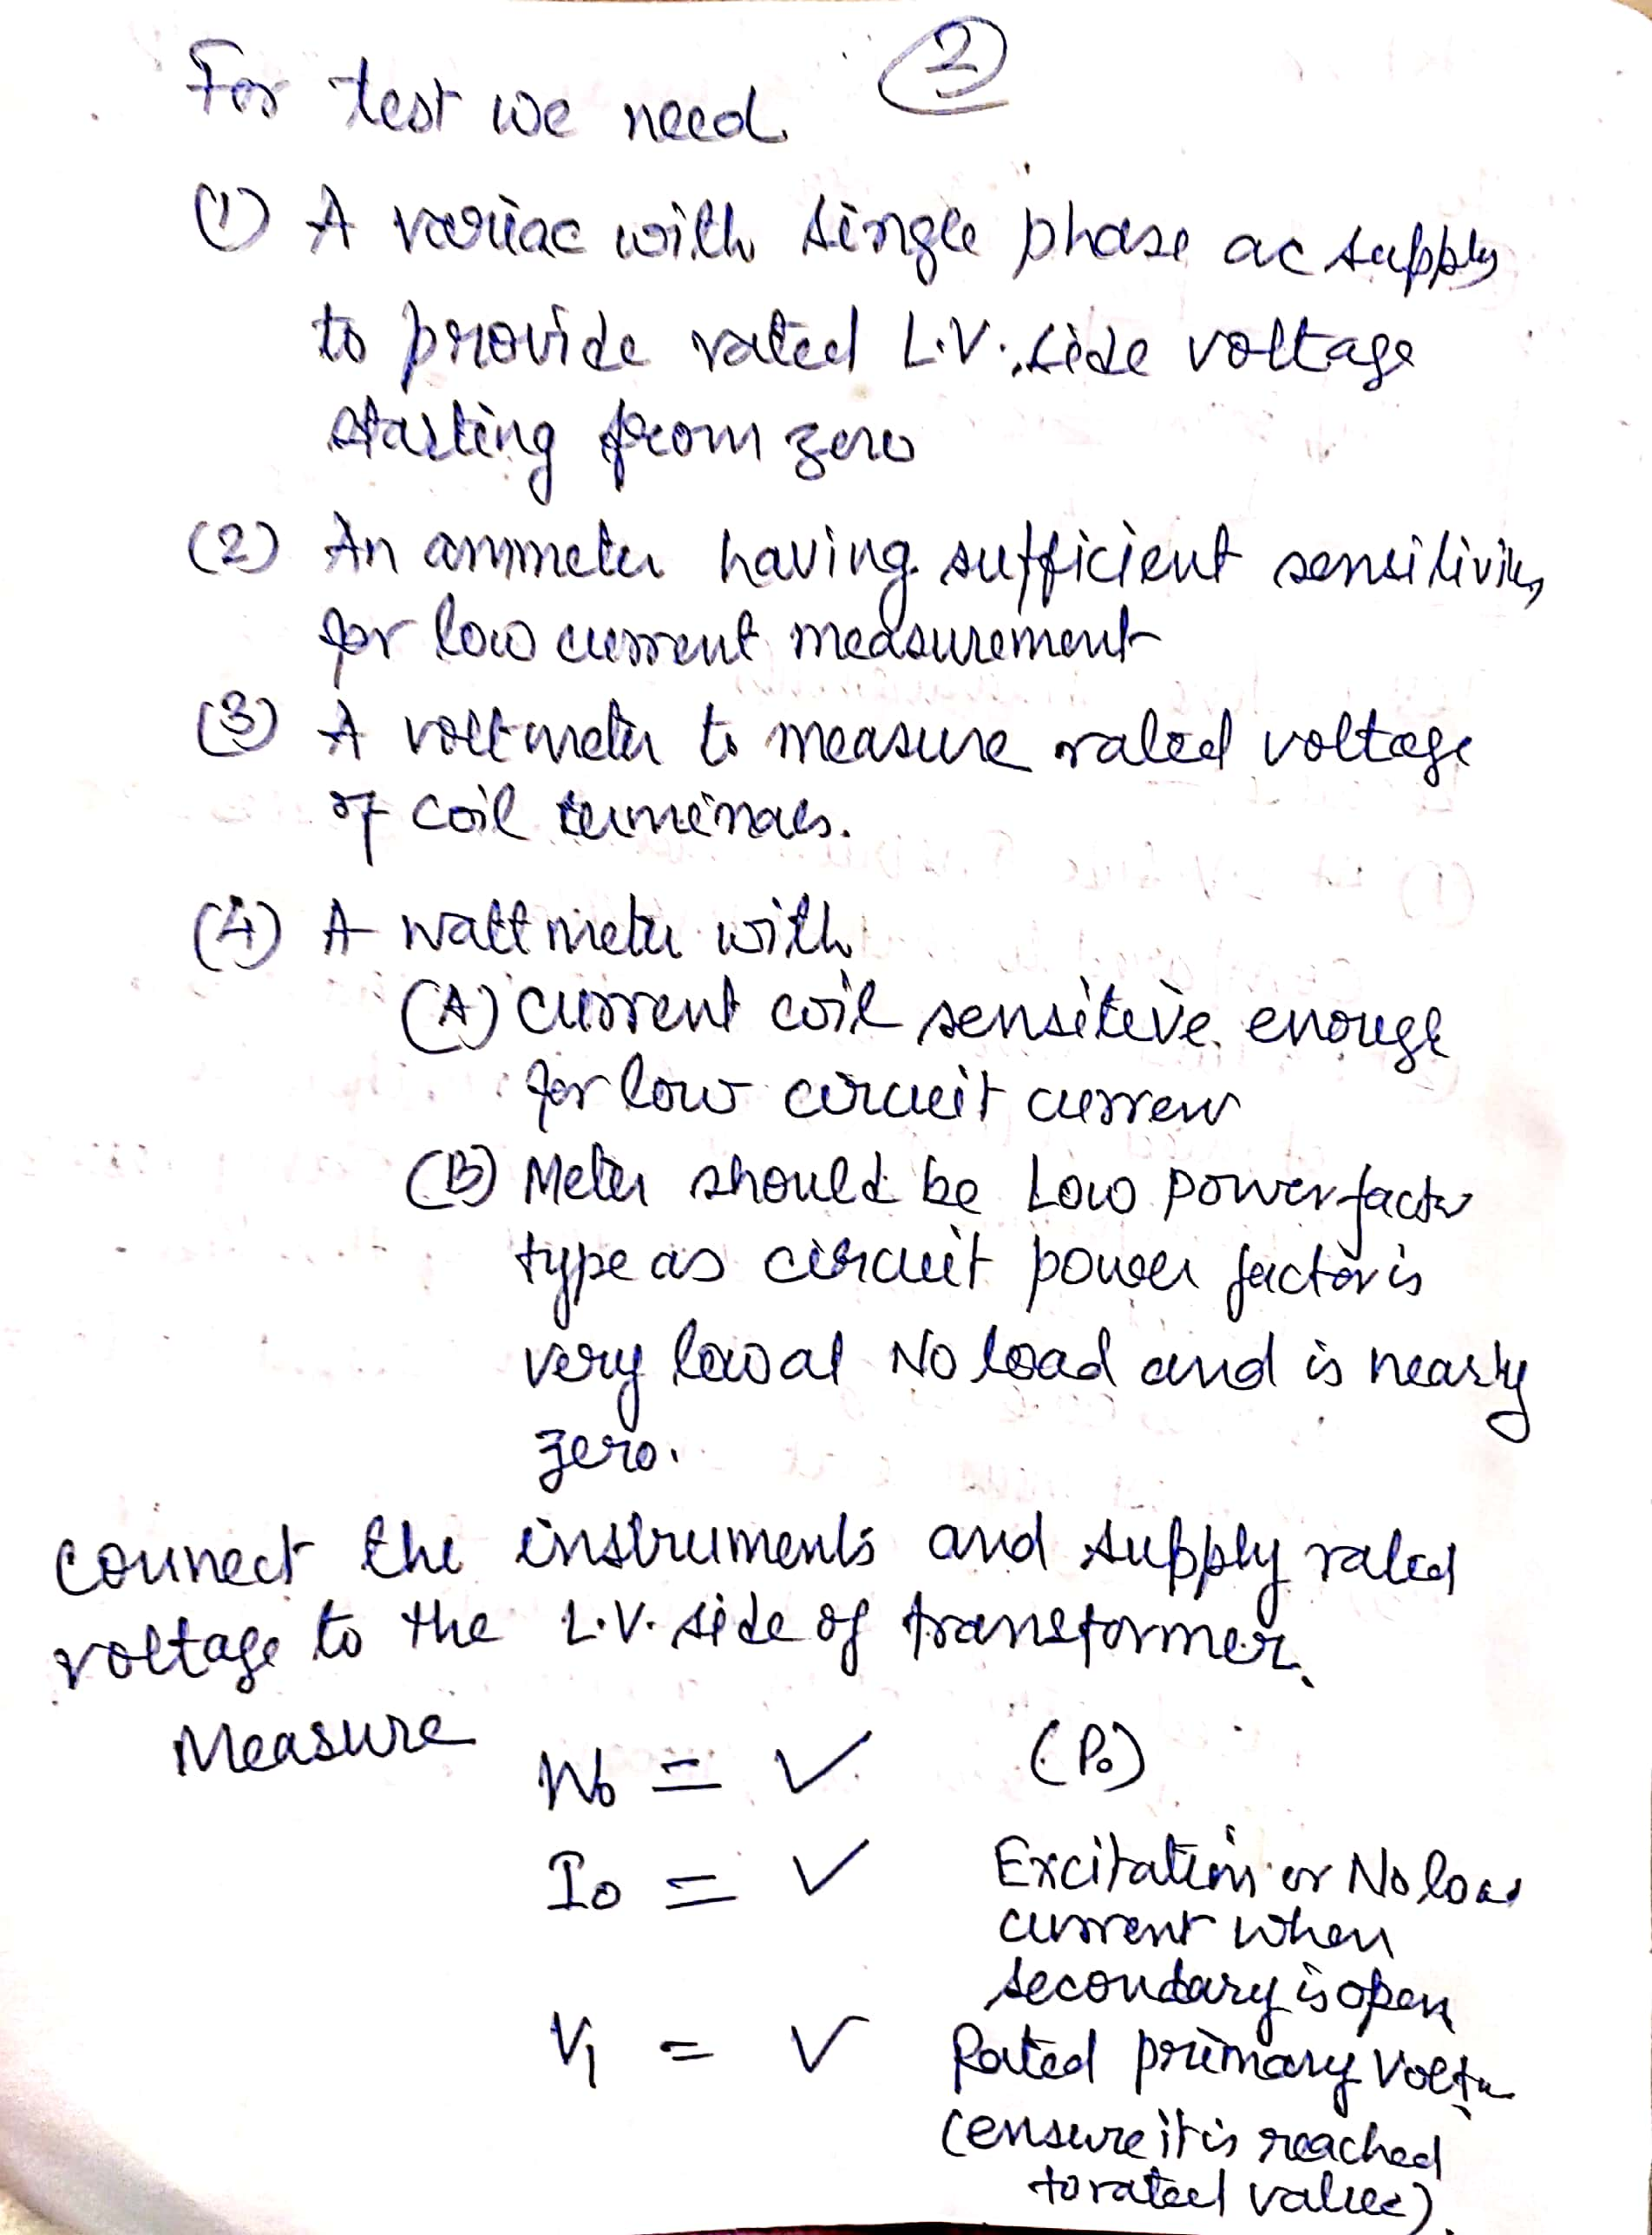 (2)
For test we need
(1) A variac with single phase ac supply
to provide rated L.V. side voltage
starting from zero
(2) An ammeter having sufficient sensitivity
for low current measurement
(3) A voltmeter to measure rated voltage
of coil terminals.
(4) A wattmeter with
(A) current coil sensitive enough
for low circuit current
(B) Meter should be Low power factor
type as circuit power factor is
very low at No load and is nearly
zero.
connect the instruments and supply rated
voltage to the L.V. side of transformer.
Measure
W₀ = ✓ (P₀)
I₀ = ✓ Excitation or No load
current when
secondary is open
V₁ = ✓ Rated primary Volt
(ensure it is reached
to rated value).